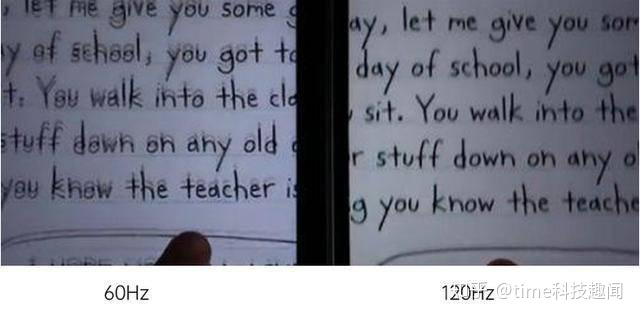 , let me give you some
y of school, you got to
t. You walk into the cla
stuff down on any old
you know the teacher is
ay, let me give you som
day of school, you got
sit. You walk into the
r stuff down on any o
g you know the teache
60Hz
120Hz
知乎 @time科技趣闻